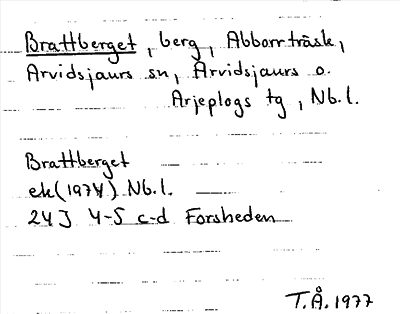 Brattberget, berg, Abborrträsk,
Arvidsjaurs sn, Arvidsjaurs o.
Arjeplogs tg, Nb.l.
Brattberget
ek(1974) Nb.l.
24J 4-5 c-d Forsheden
T.Å. 1977